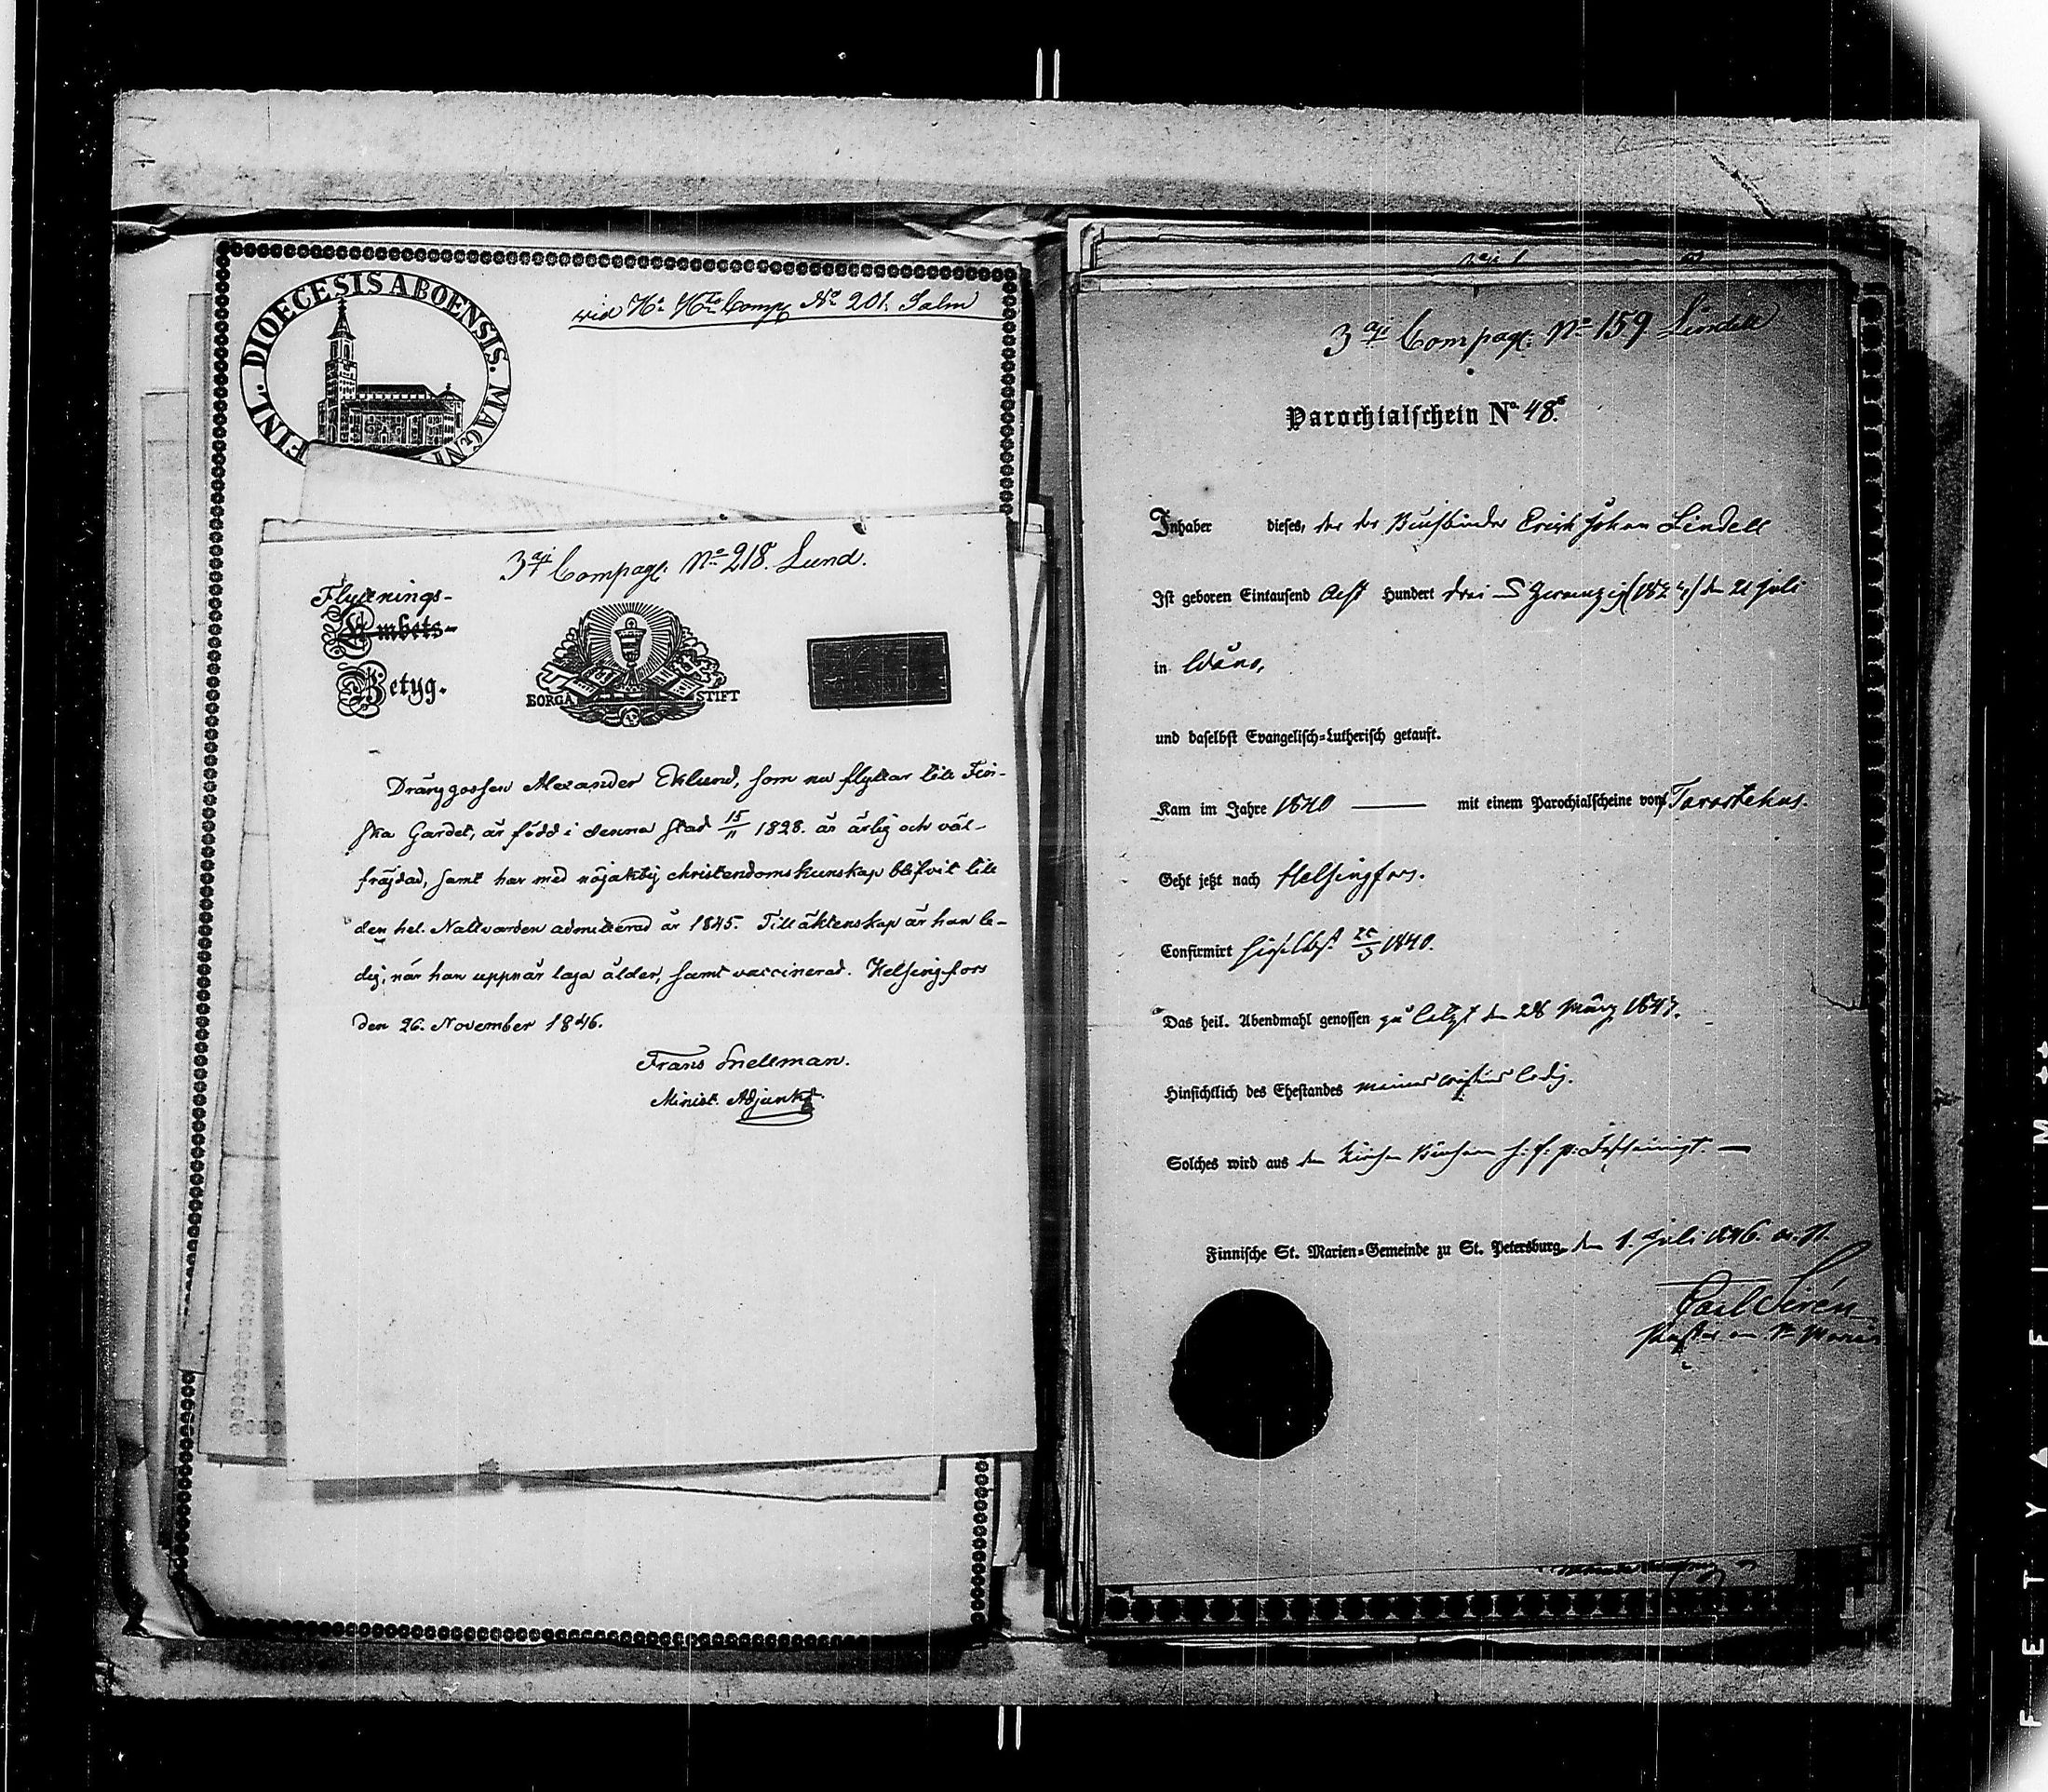 FINL. DIOECESIS ABOENSIS. MAGNI
wid H: Hts Comp No 201. Salm
3dji Compag: No 218. Lund.
Flyttnings-
Embets-
Betyg.
BORGÅ STIFT
Dränggossen Alexander Eklund, som nu flyttar till Fin-
ska Gardet, är född i denna stad 15/11 1828. är ärlig och väl-
fräjdad, samt har med nöjaktig christendomskunskap blifvit till
den hel. Nattvarden admitterad år 1845. Till äktenskap är han le-
dig, när han uppnår laga ålder, samt vaccinerad. Helsingfors
den 26. November 1846.
Frans Snellman.
Minist. Adjunkt.
3dji Compag: No 159 Lindell
Parochialschein No 48.
Inhaber dieses, der Buchbinder Erich Johan Lindell
Ist geboren Eintausend Acht Hundert drei & zwanzig den 21 Juli
in
und daselbst Evangelisch-Lutherisch getauft.
Kam im Jahre 1840 — mit einem Parochialscheine von Tavastehus.
Geht jetzt nach Helsingfors.
Confirmirt hieselbst 1840.
Das heil. Abendmahl genossen zu letzt den 28 März 184
Hinsichtlich des Ehestandes meines Wissens ledig.
Solches wird aus den Kirchen Büchern h. f. p. bescheinigt. —
Finnische St. Marien-Gemeinde zu St. Petersburg, den 1. Juli 1846.
Carl Sirén
Pastor an St Marien
FETYA FILM